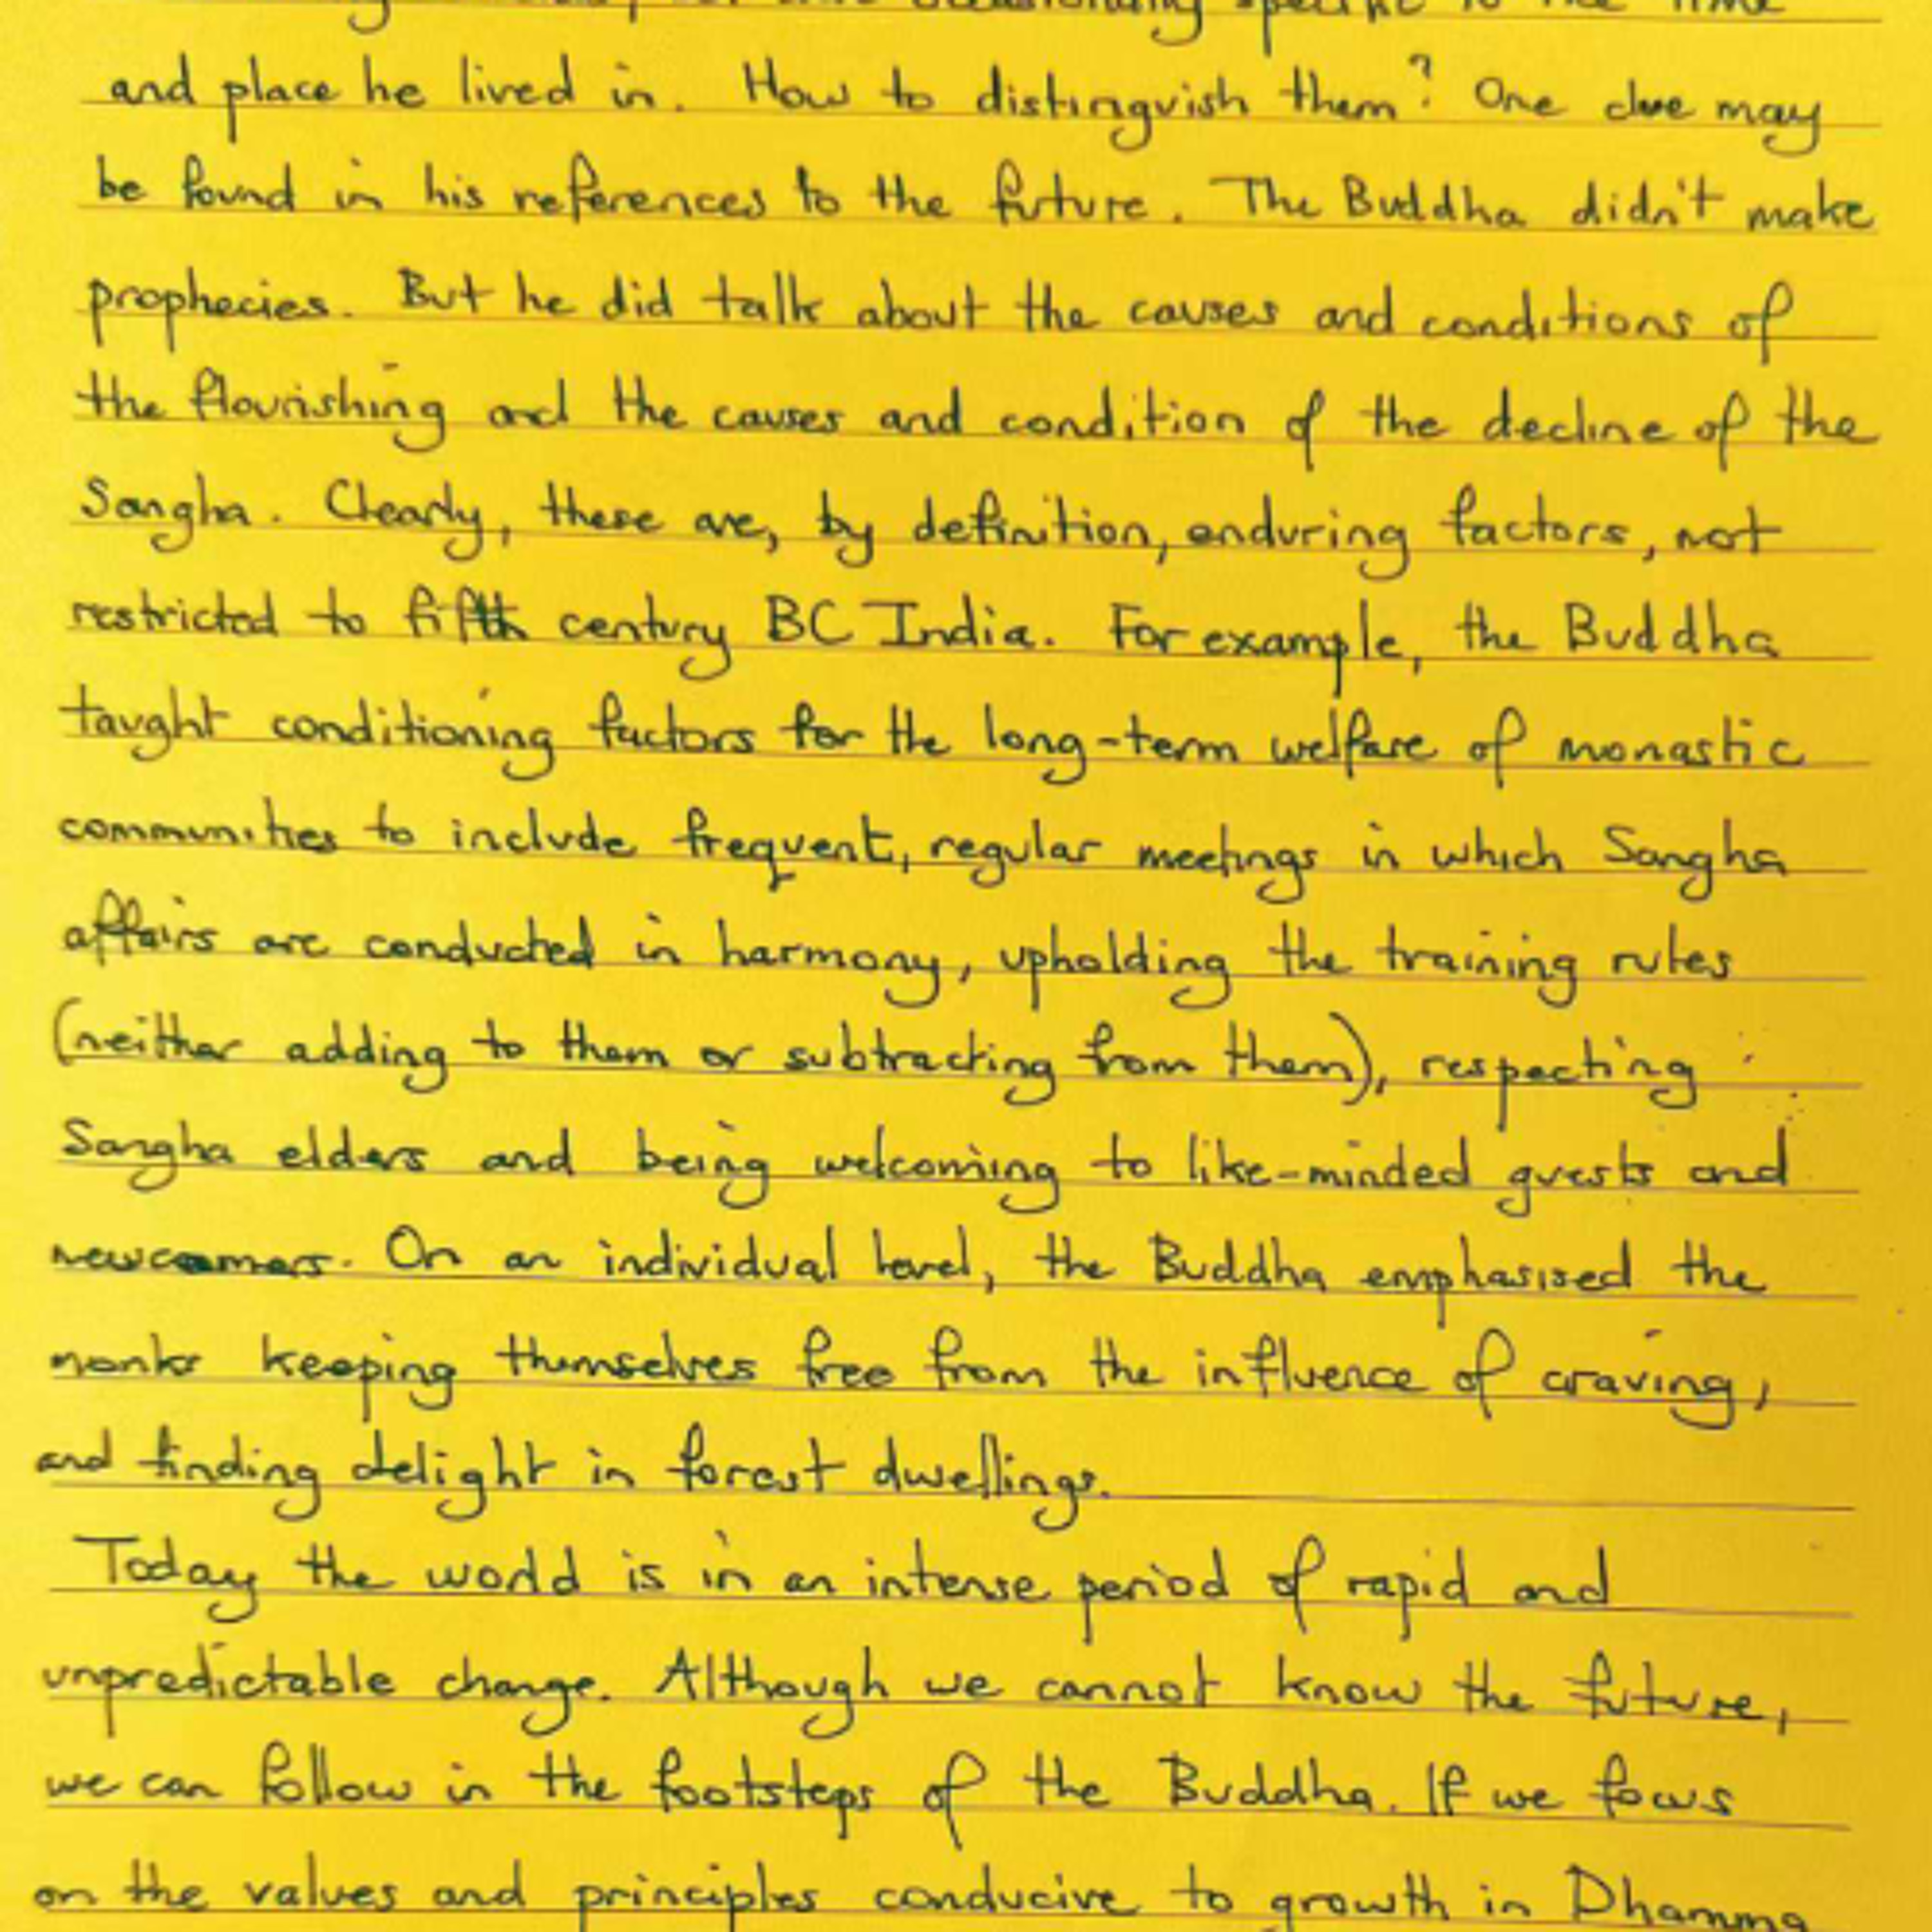 occasionally specific to the time
and place he lived in. How to distinguish them? One clue may
be found in his references to the future. The Buddha didn't make
prophecies. But he did talk about the causes and conditions of
the flourishing and the causes and condition of the decline of the
Sangha. Clearly, these are, by definition, enduring factors, not
restricted to fifth century BC India. For example, the Buddha
taught conditioning factors for the long-term welfare of monastic
communities to include frequent, regular meetings in which Sangha
affairs are conducted in harmony, upholding the training rules
(neither adding to them or subtracting from them), respecting
Sangha elders and being welcoming to like-minded guests and
newcomers. On an individual level, the Buddha emphasised the
monks keeping themselves free from the influence of craving,
and finding delight in forest dwellings.
Today the world is in an intense period of rapid and
unpredictable change. Although we cannot know the future,
we can follow in the footsteps of the Buddha. If we focus
on the values and principles conducive to growth in Dhamma